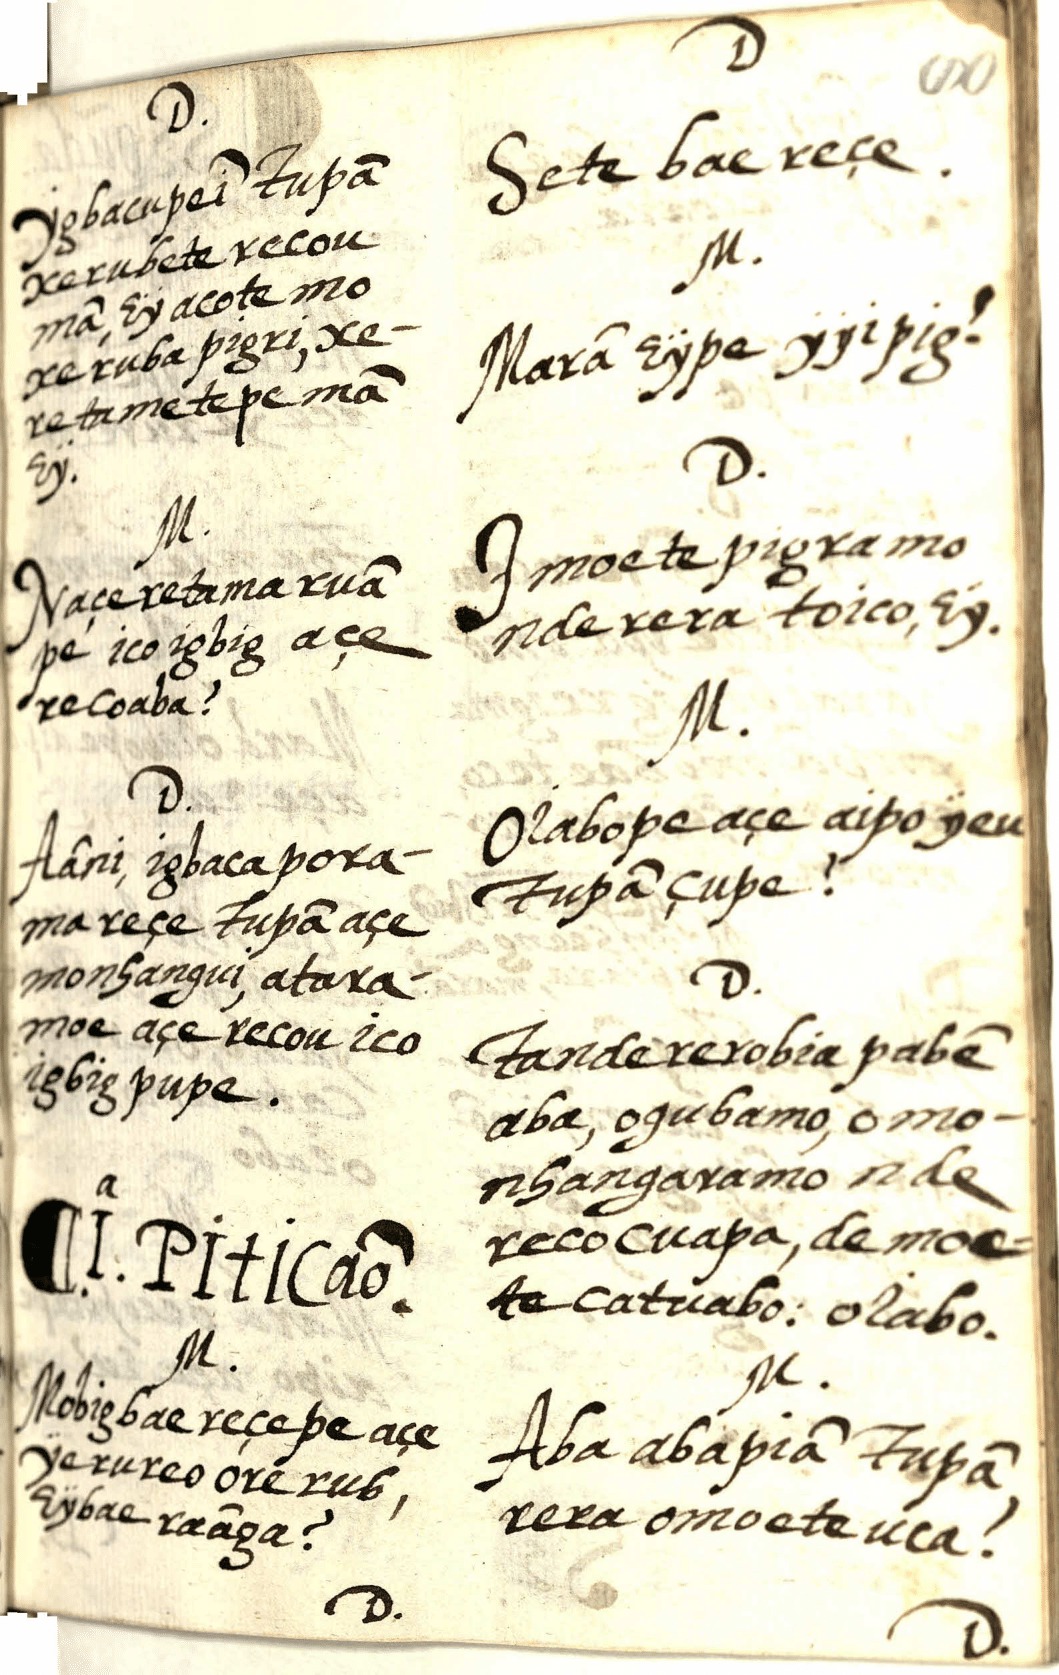 D.
ygbacupeī Tupã
xerubete recou
mã, Eÿ acote mo
xe ruba pigri, xe-
retametepe mã
Eÿ.
M.
Naçeretama ruã
pe ico igbig açe
recoaba?
D.
Aâni, igbaca pora-
ma reçe Tupã açe
monhangui, atara-
moe açe recou ico
igbig pupe.
¶ I.ª Pitiçaõ.
M.
Mobigbae reçepe açe
ÿerureo ore rub,
Eÿbae raãga?
D.
D
60
Sete bae reçe.
M.
Marã Eÿpe ÿyipig?
D.
I moete pigramo
nde rera toico, Eÿ.
M.
Oiabope açe aipo ÿeu
Tupã çupe?
D.
Tande rerobia pabẽ
aba, ogubamo, o mo-
nhangaramo nde
reco cuapa, de moe-
te catuabo: oiabo.
M.
Aba abapiã Tupã
rera omoete uca?
D.